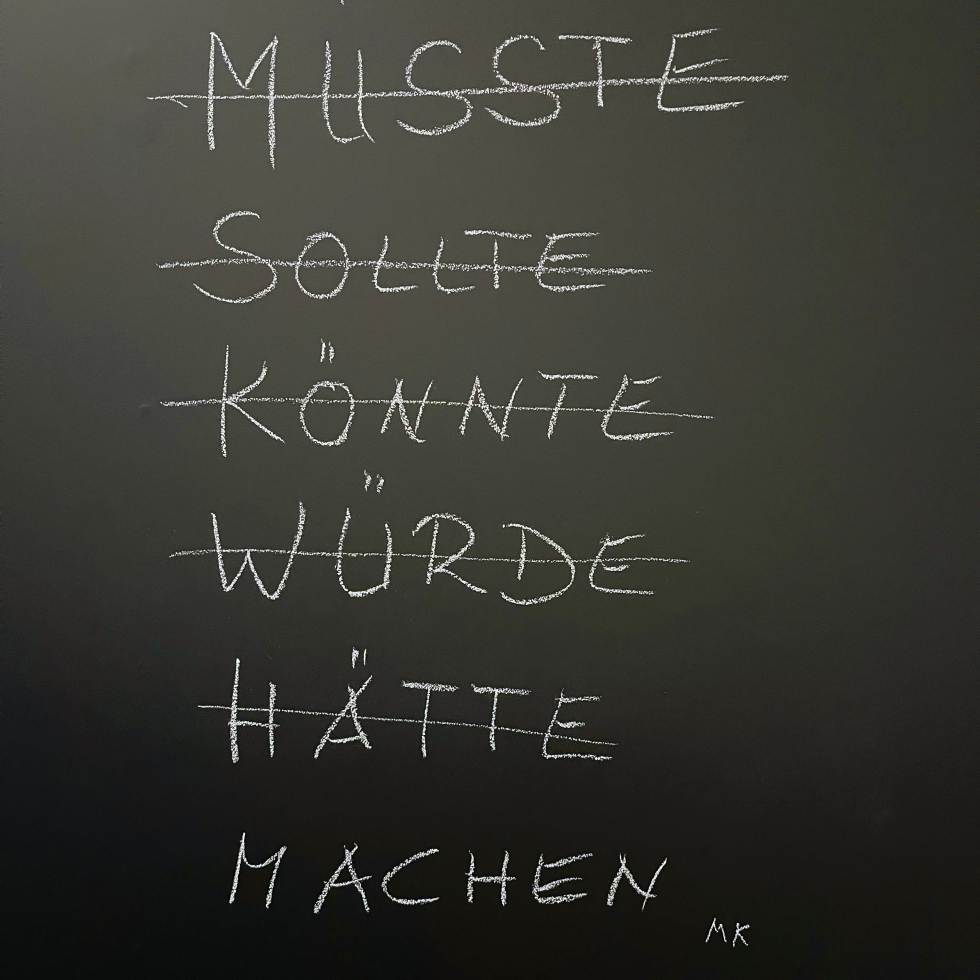 MÜSSTE
SOLLTE
KÖNNTE
WÜRDE
HÄTTE
MACHEN
MK